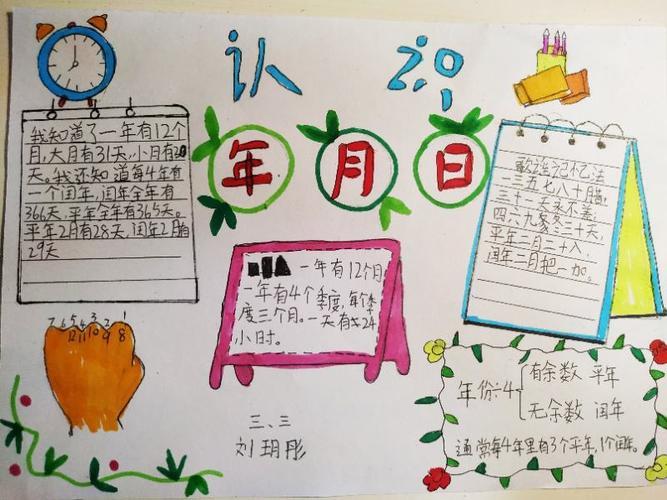 认识
年月日
我知道了一年有12个
月,大月有31天,小月有30
天。我还知道每4年有
一个闰年,闰年全年有
366天,平年全年有365天。
平年2月有28天,闰年2月有
29天
歌谣记忆法
三五七八十腊,
三十一天永不差;
四六九冬三十天,
平年二月二十八,
闰年二月把一加。
一年有12个月
一年有4个季度,每个季
度三个月。一天有24
小时。
7 6 5 4 3 2 1
12 11 10 9 8
年份÷4
有余数 平年
无余数 闰年
通常每4年里有3个平年,1个闰年。
三、三
刘玥彤